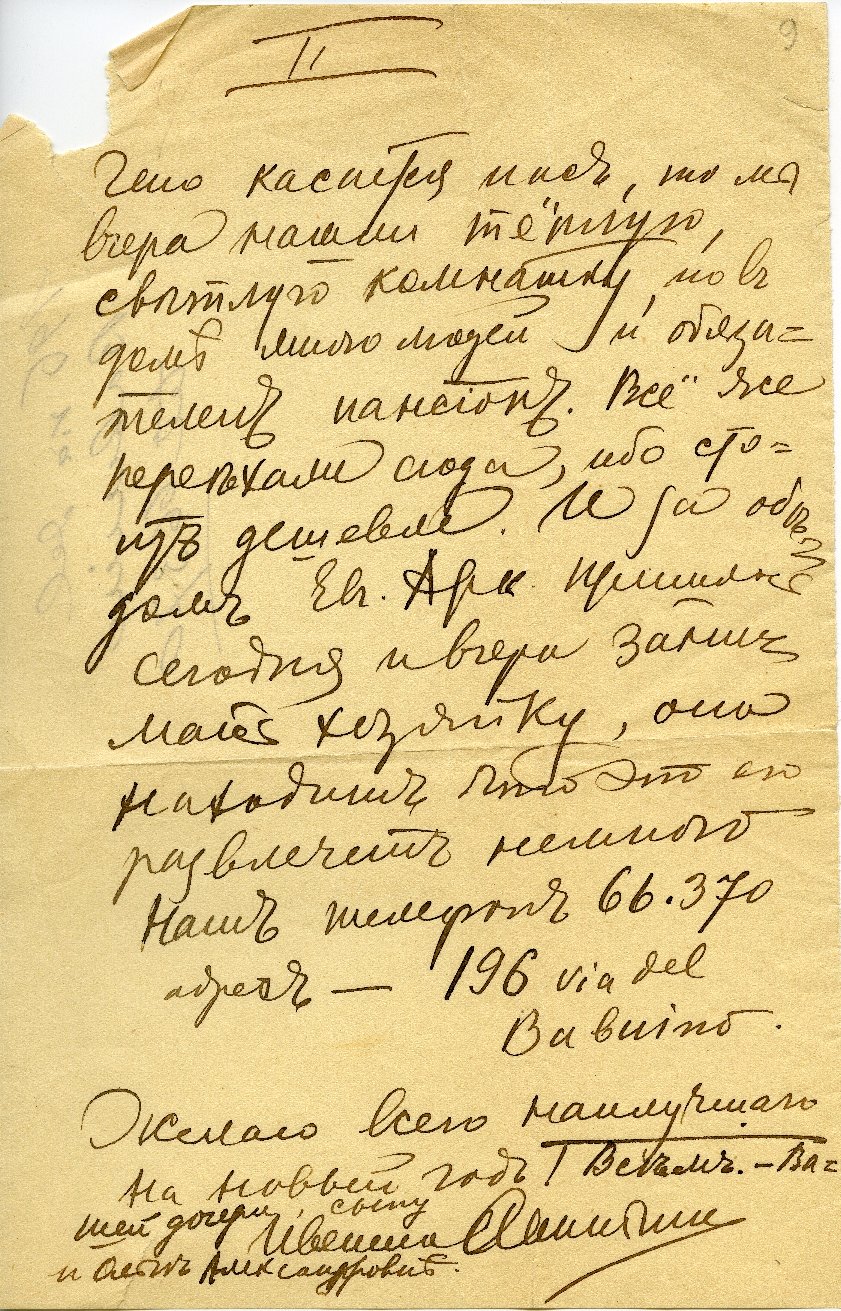 II
9
Чего касается насъ, то мы
вчера нашли тёплую,
свѣтлую комнатку, но въ
домѣ много людей и обяза=
теленъ пансіонъ. Всё же
переѣхали сюда, ибо сто=
итъ дешевле. И за обѣ=
домъ Евг. Арк. пришлось
сегодня и вчера зани
мать хозяйку, она
находитъ что это ее
развлечетъ немного
Нашъ телефонъ 66.370
адресъ — 196 via del
Babuino.
Желаю всего наилучшаго
на новый годъ! Всѣмъ. – Ва=
шей дочери, сыну
и Ольгѣ Александровнѣ.